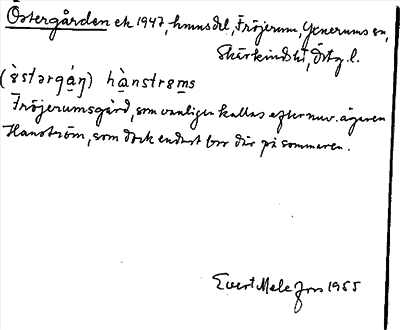 Östergården ek 1947, hmnsdel, Fröjerum, Yxnerums sn,
Skärkinds hd, Östg. l.
(ə̀stərgán) hànstrøms
Fröjerumsgård, som vanligen kallas efter nuv. ägaren
Hanström, som dock endast bor där på sommaren.
Evert Melefors 1955